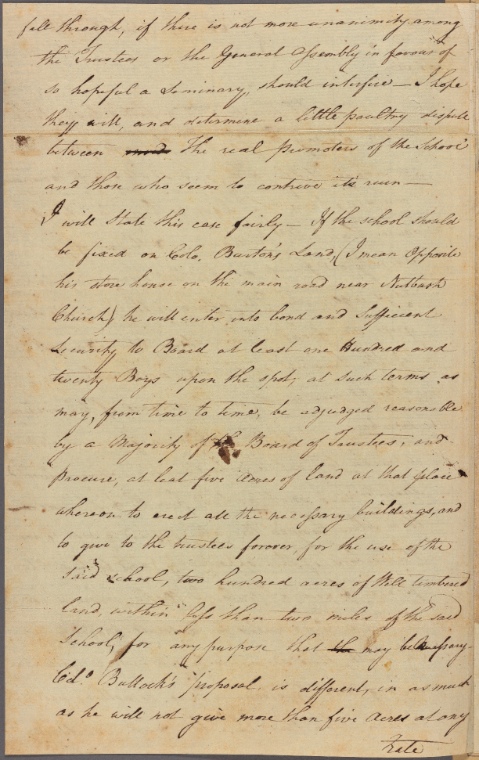 fall through, if there is not more unanimity among
the Trustees or the General Assembly in favour of
so hopeful a Seminary, should interfere — I hope
they will, and determine a little paultry dispute
between the real promoters of the School
and those who seem to contrive it's ruin —
I will state this case fairly — If the school should
be fixed on Colo. Burton's Land, (I mean Opposite
his store house on the main road near Nutbush
Church) he will enter into bond and Sufficient
Security to Board at least one Hundred and
twenty Boys upon the spot, at such terms as
may, from time to time, be adjudged reasonable
by a Majority of the Board of Trustees, and
procure, at least five acres of land at that place
whereon to erect all the necessary buildings, and
to give to the trustees forever, for the use of the
said school, two hundred acres of Well timbered
land within less than two miles of the said
School, for any purpose that may be necessary —
Bullock's proposal is different, in as much
as he will not give more than five Acres at any
rate